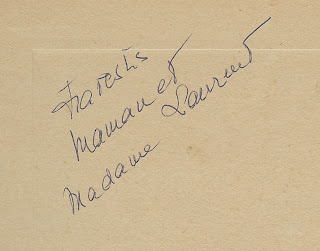 Maman et
Madame Laurent